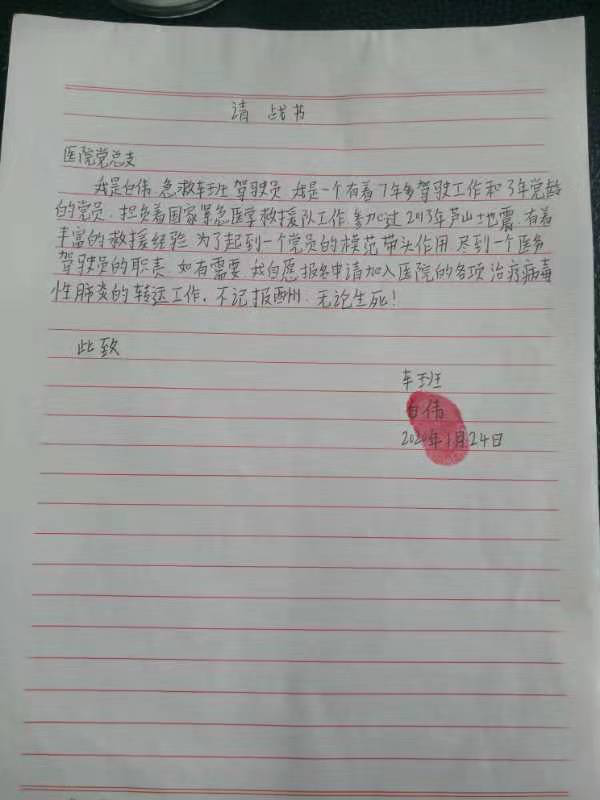 请战书
医院党总支
我是白伟 急救车班驾驶员 我是一个有着7年多驾驶工作和3年党龄
的党员.担负着国家紧急医学救援队工作 参加过2013年芦山地震.有着
丰富的救援经验 为了起到一个党员的模范带头作用 尽到一个医务
驾驶员的职责.如有需要 我自愿报名申请加入医院的各项治疗病毒
性肺炎的转运工作.不记报酬.无论生死!
此致
车班
白伟
2020年1月24日